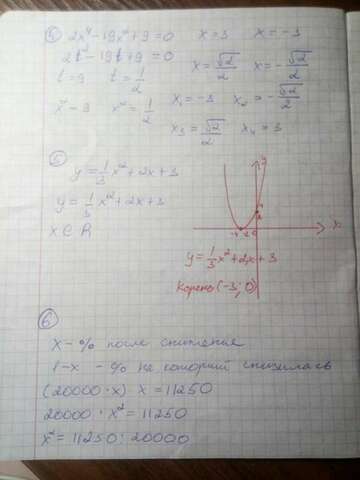 ④ 2x⁴-19x²+9=0 x=3 x=-3
2t²-19t+9=0 x=√2/2 x=-√2/2
t=9 t=1/2
x²=9 x²=1/2 x₁=-3 x₂=-√2/2
x₃=√2/2 x₄=3
⑤ y=1/3x²+2x+3
y=1/3x²+2x+3
x∈R
y
x
y=1/3x²+2x+3
Корень(-3;0)
⑥
x-% после снижения
1-x -% на который снизилась
(20000·x) x=11250
20000·x²=11250
x²=11250:20000